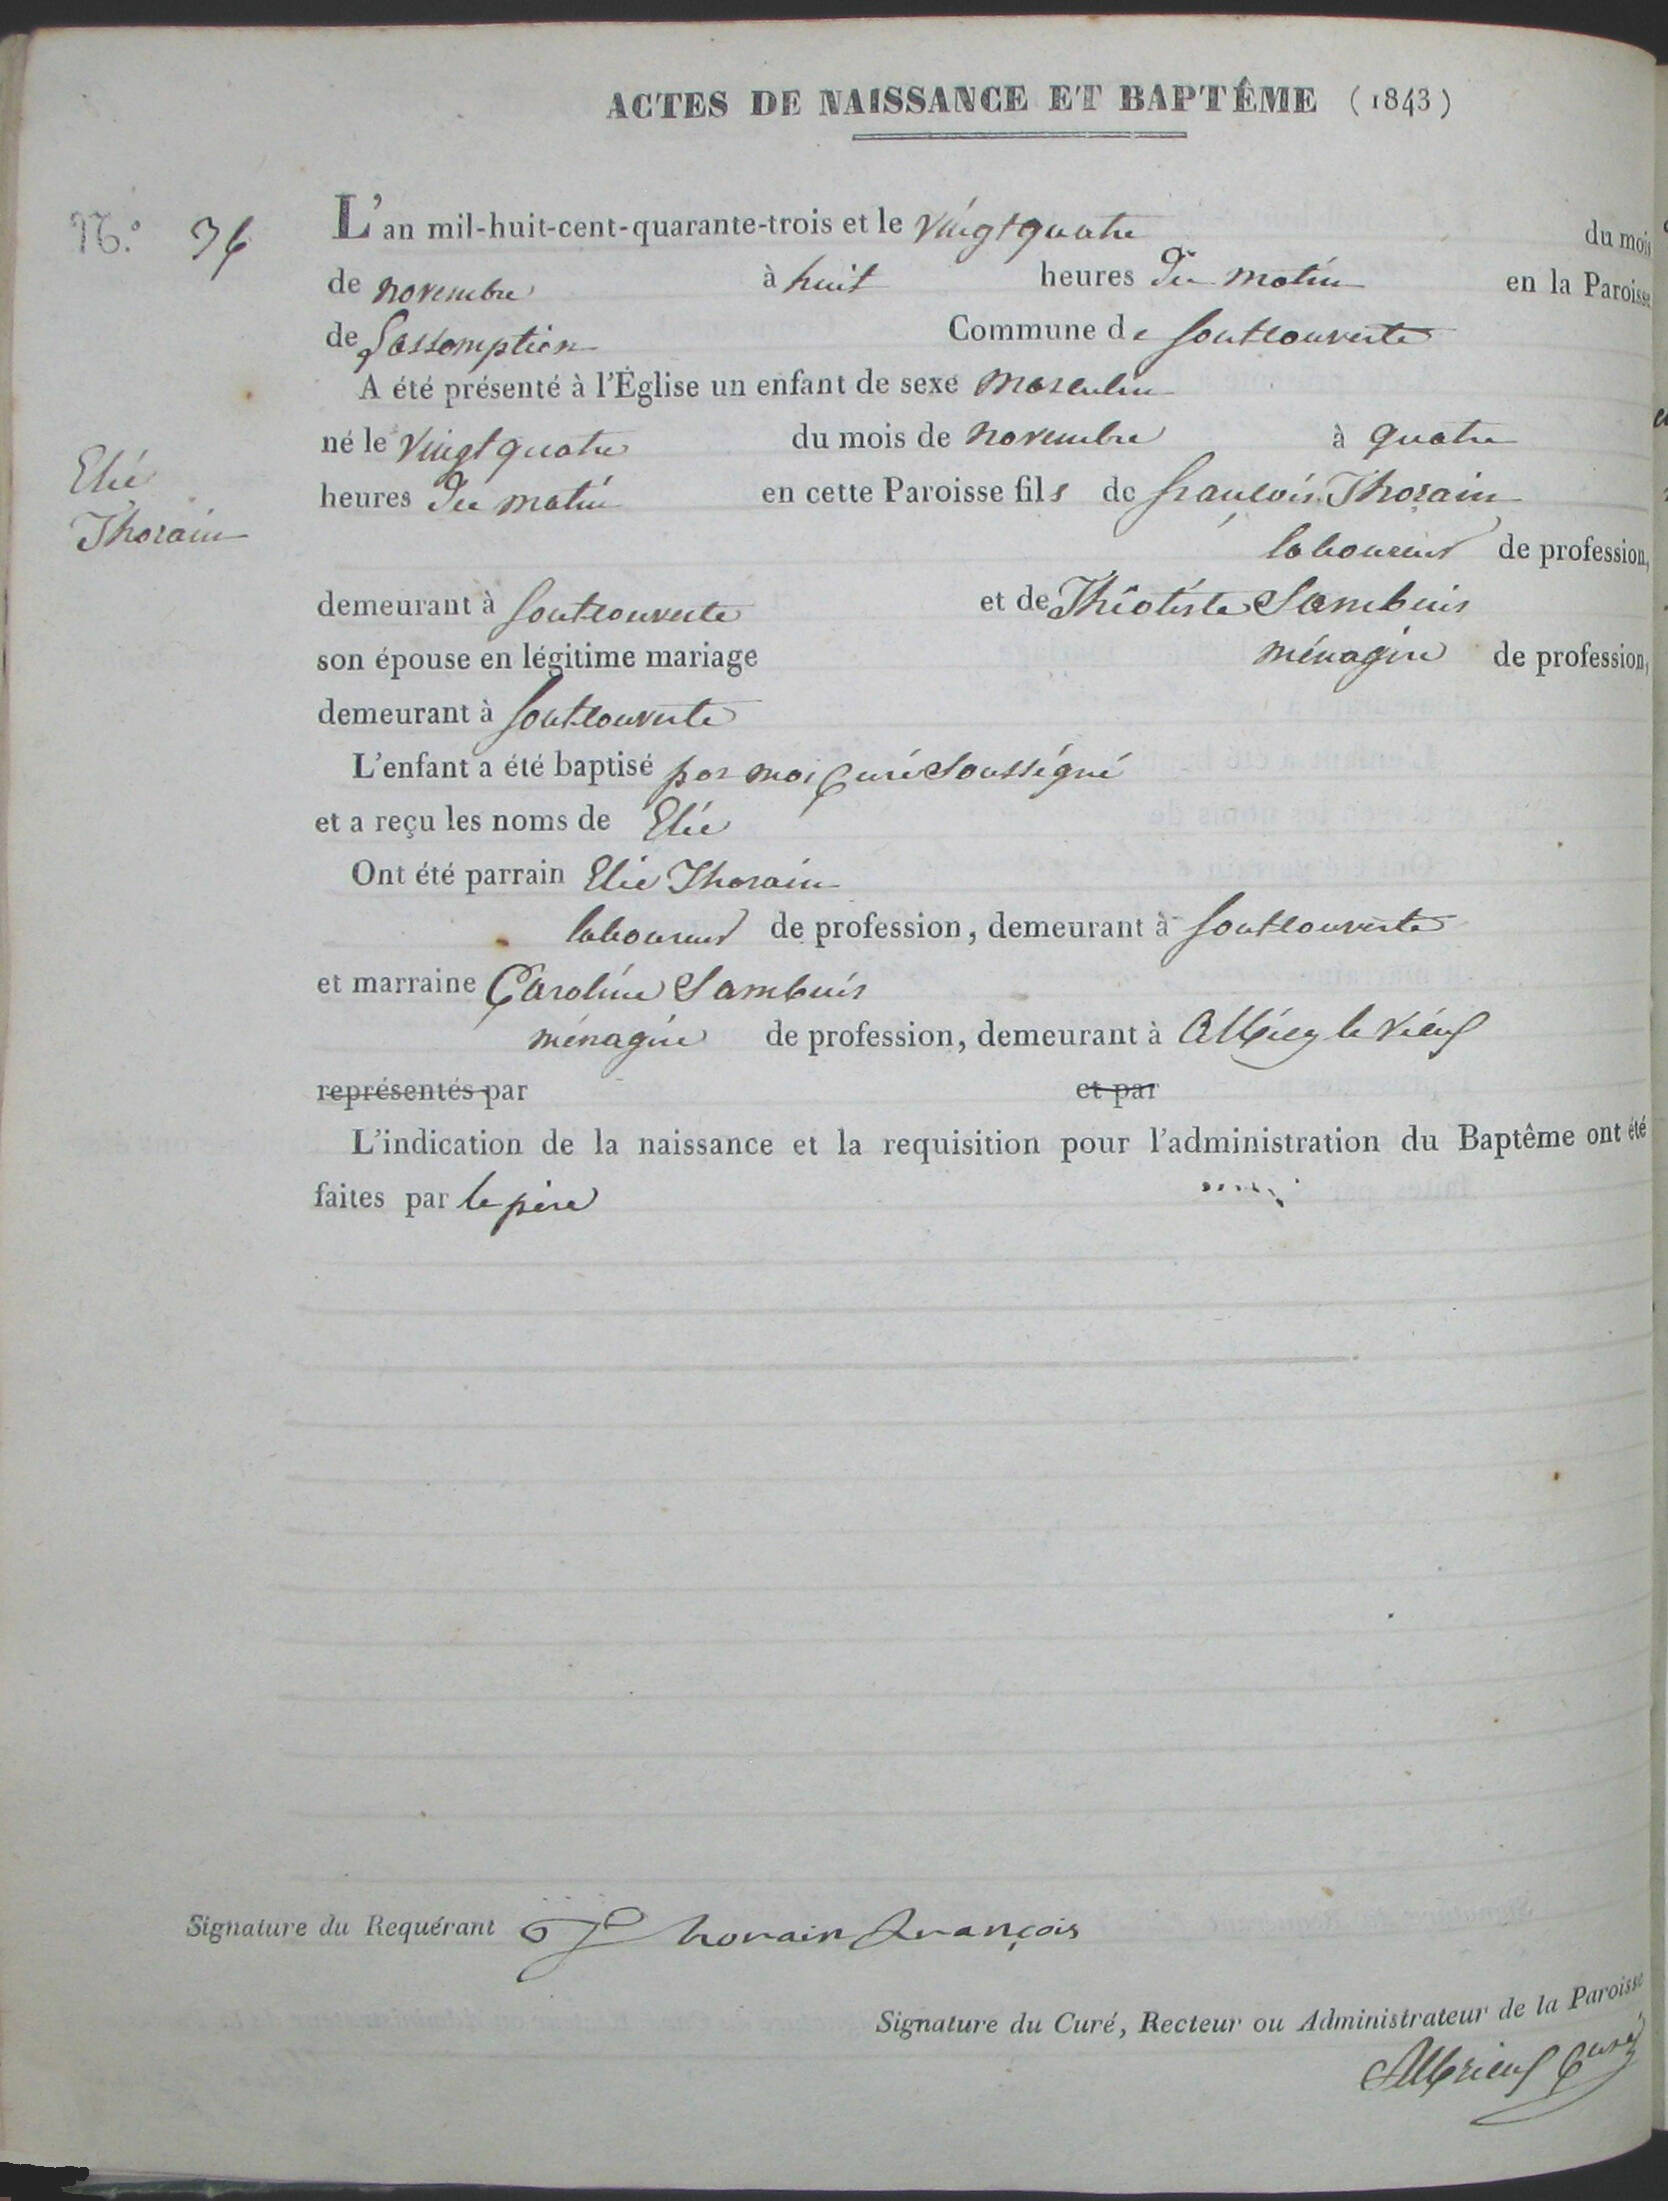 ACTES DE NAISSANCE ET BAPTÊME (1843)
N.º 36
L'an mil-huit-cent-quarante-trois et le vingt quatre du mois
de novembre à huit heures du matin en la Paroisse
de L'assomption Commune de fontcouverte
A été présenté à l'Église un enfant de sexe masculin
né le vingt quatre du mois de novembre à quatre
Elie
Thorain
heures du matin en cette Paroisse fils de françois Thorain
laboureur de profession,
demeurant à fontcouverte et de Théotiste Sambuis
son épouse en légitime mariage ménagère de profession,
demeurant à fontcouverte
L'enfant a été baptisé par moi Curé Soussigné
et a reçu les noms de Elie
Ont été parrain Elie Thorain
laboureur de profession, demeurant à fontcouverte
et marraine Caroline Sambuis
ménagère de profession, demeurant à Albiez le vieux
représentés par et par
L'indication de la naissance et la requisition pour l'administration du Baptême ont été
faites par le père
Signature du Requérant Thorain françois
Signature du Curé, Recteur ou Administrateur de la Paroisse
Albrieux Curé